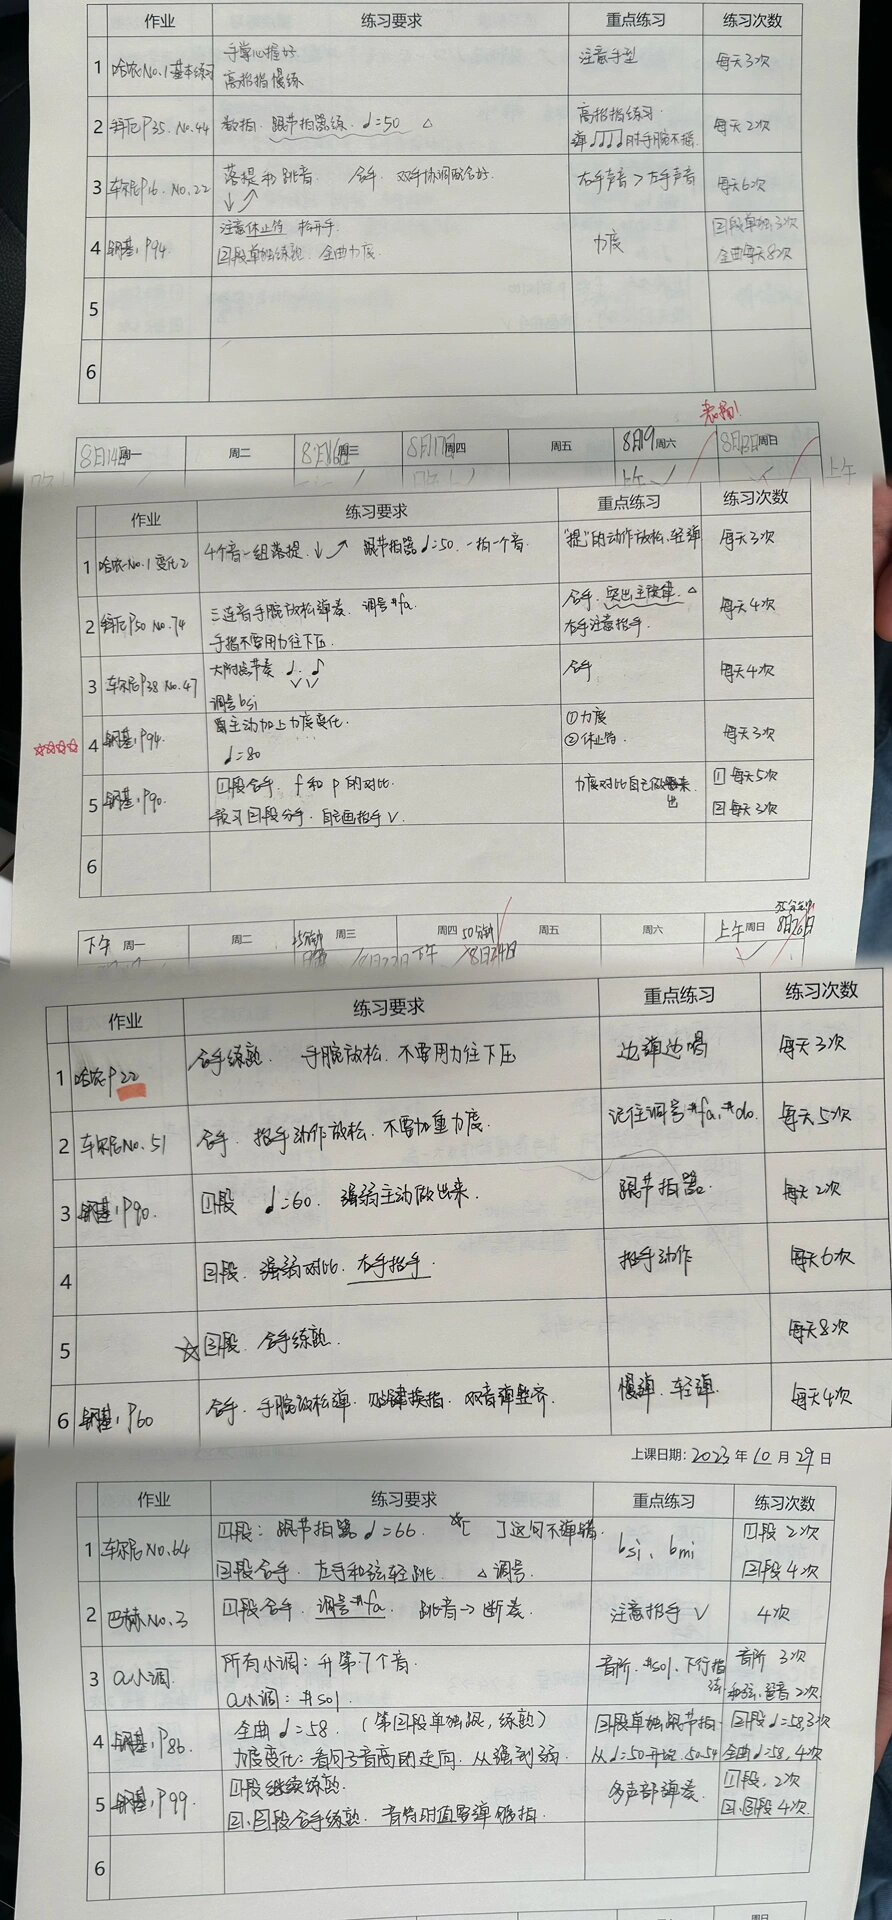 作业 练习要求 重点练习 练习次数
1 哈农No.1基本练习 手掌心握好 注意手型 每天3次
高抬指慢练
2 拜厄P35. No.44 数拍. 跟节拍器练. ♩=50 △ 高抬指练习. 每天2次
弹♩♩♩♩时手腕不摇.
3 车尔尼P16. No.22 落提和跳音. 合手. 双手协调配合好. 右手声音>左手声音 每天6次
↓ ↗
4 钢基1 P94. 注意休止符 松开手. 力度 四段单独3次
四段单独练熟. 全曲力度. 全曲每天8次
5
6
8月14日周一 周二 8月16日周三 8月17日周四 周五 8月19周六 周日
上午
作业 练习要求 重点练习 练习次数
1 哈农No.1变化2 4个音一组落提. ↓ ↗ 跟节拍器♩=50. 一拍一个音. "提"的动作放松、轻弹 每天3次
2 拜厄P50 No.74 三连音手腕放松弹奏. 调号#fa. 合手. 突出主旋律. △ 每天4次
手指不要用力往下压. 右手注意抬手.
3 车尔尼P38 No.47 大附点节奏 ♩. ♪ 合手 每天4次
调号bsi
☆☆☆☆ 4 钢基1 P94. 要主动加上力度变化. ①力度 每天3次
♩=80 ②休止符.
5 钢基1 P90. 一段合手. f和p的对比. 力度对比自己做出来 一 每天5次
预习二段分手. 自己画抬手V. 二 每天3次
6
下午 周一 周二 周三 周四 50分钟 周五 周六 上午 周日 8月26日
8月24日
作业 练习要求 重点练习 练习次数
1 哈农P22 合手练熟. 手腕放松. 不要用力往下压 边弹边唱 每天3次
2 车尔尼No.51 合手. 抬手动作放松. 不要加重力度. 记住调号#fa、#do. 每天5次
3 钢基1 P90. 一段 ♩=60. 强弱主动做出来. 跟节拍器. 每天2次
4 二段. 强弱对比. 右手抬手. 抬手动作 每天6次
5 ☆三段. 合手练熟. 每天8次
6 钢基1 P60 合手. 手腕放松弹. 贴键换指. 双音弹整齐. 慢弹. 轻弹. 每天4次
上课日期: 2023 年 10 月 29 日
作业 练习要求 重点练习 练习次数
1 车尔尼No.64 一段: 跟节拍器♩=66. ☆[ ]这句不弹错. bsi、bmi 一段2次
二段合手. 左手和弦轻跳. △调号. 二段4次
2 巴赫No.3 一段合手. 调号#fa. 跳音→断奏. 注意抬手V 4次
3 a小调. 所有小调: 升第7个音. 音阶. #sol. 下行指法 音阶 3次
a小调: #sol. 和弦、琶音2次
4 钢基1 P86. 全曲♩=58. (第四段单独跟, 练熟) 四段单独跟节拍. 四段♩=58 3次
力度变化: 看句子音高的走向. 从强到弱. 从♩=50开始. 50.54 全曲♩=58, 4次
5 钢基1 P99. 一段继续练熟. 多声部弹奏. 一段, 2次
二、三段合手练熟. 音符时值要弹够拍. 二、三段4次
6